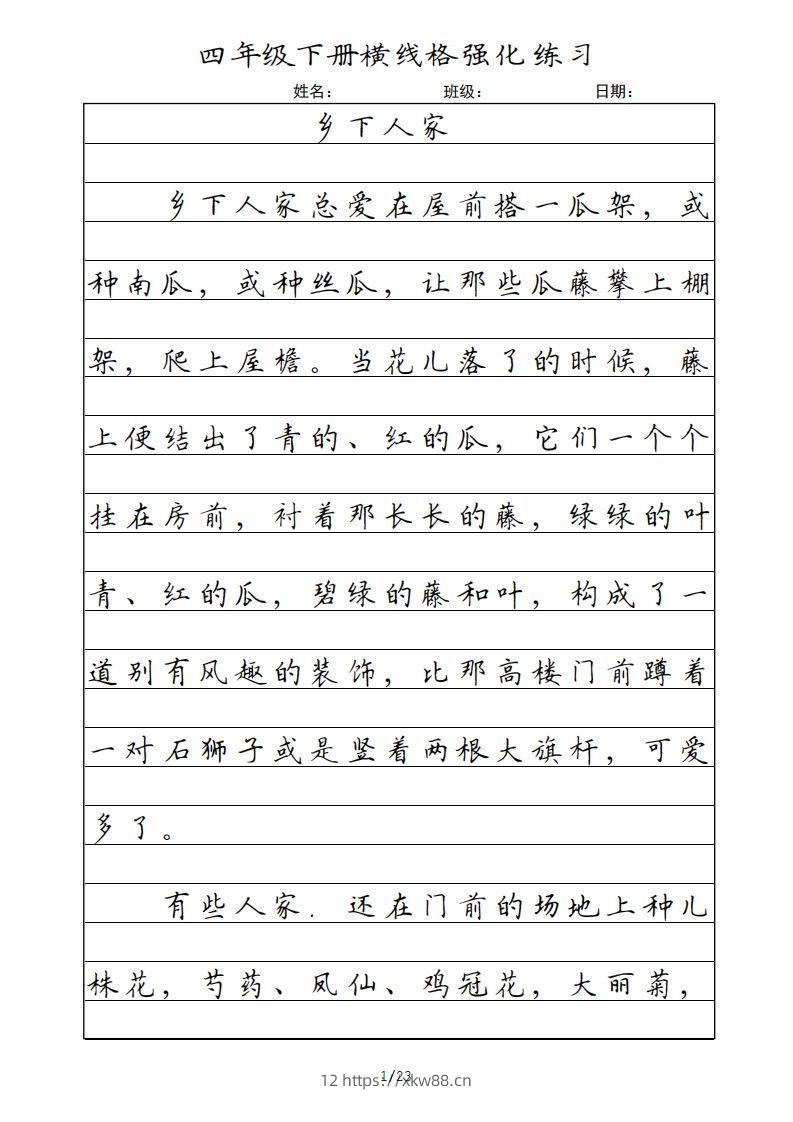 四年级下册横线格强化练习
姓名： 班级： 日期：
乡下人家
乡下人家总爱在屋前搭一瓜架，或
种南瓜，或种丝瓜，让那些瓜藤攀上棚
架，爬上屋檐。当花儿落了的时候，藤
上便结出了青的、红的瓜，它们一个个
挂在房前，衬着那长长的藤，绿绿的叶
青、红的瓜，碧绿的藤和叶，构成了一
道别有风趣的装饰，比那高楼门前蹲着
一对石狮子或是竖着两根大旗杆，可爱
多了。
有些人家．还在门前的场地上种几
株花，芍药、凤仙、鸡冠花，大丽菊，
1/23
12 https://xkw88.cn